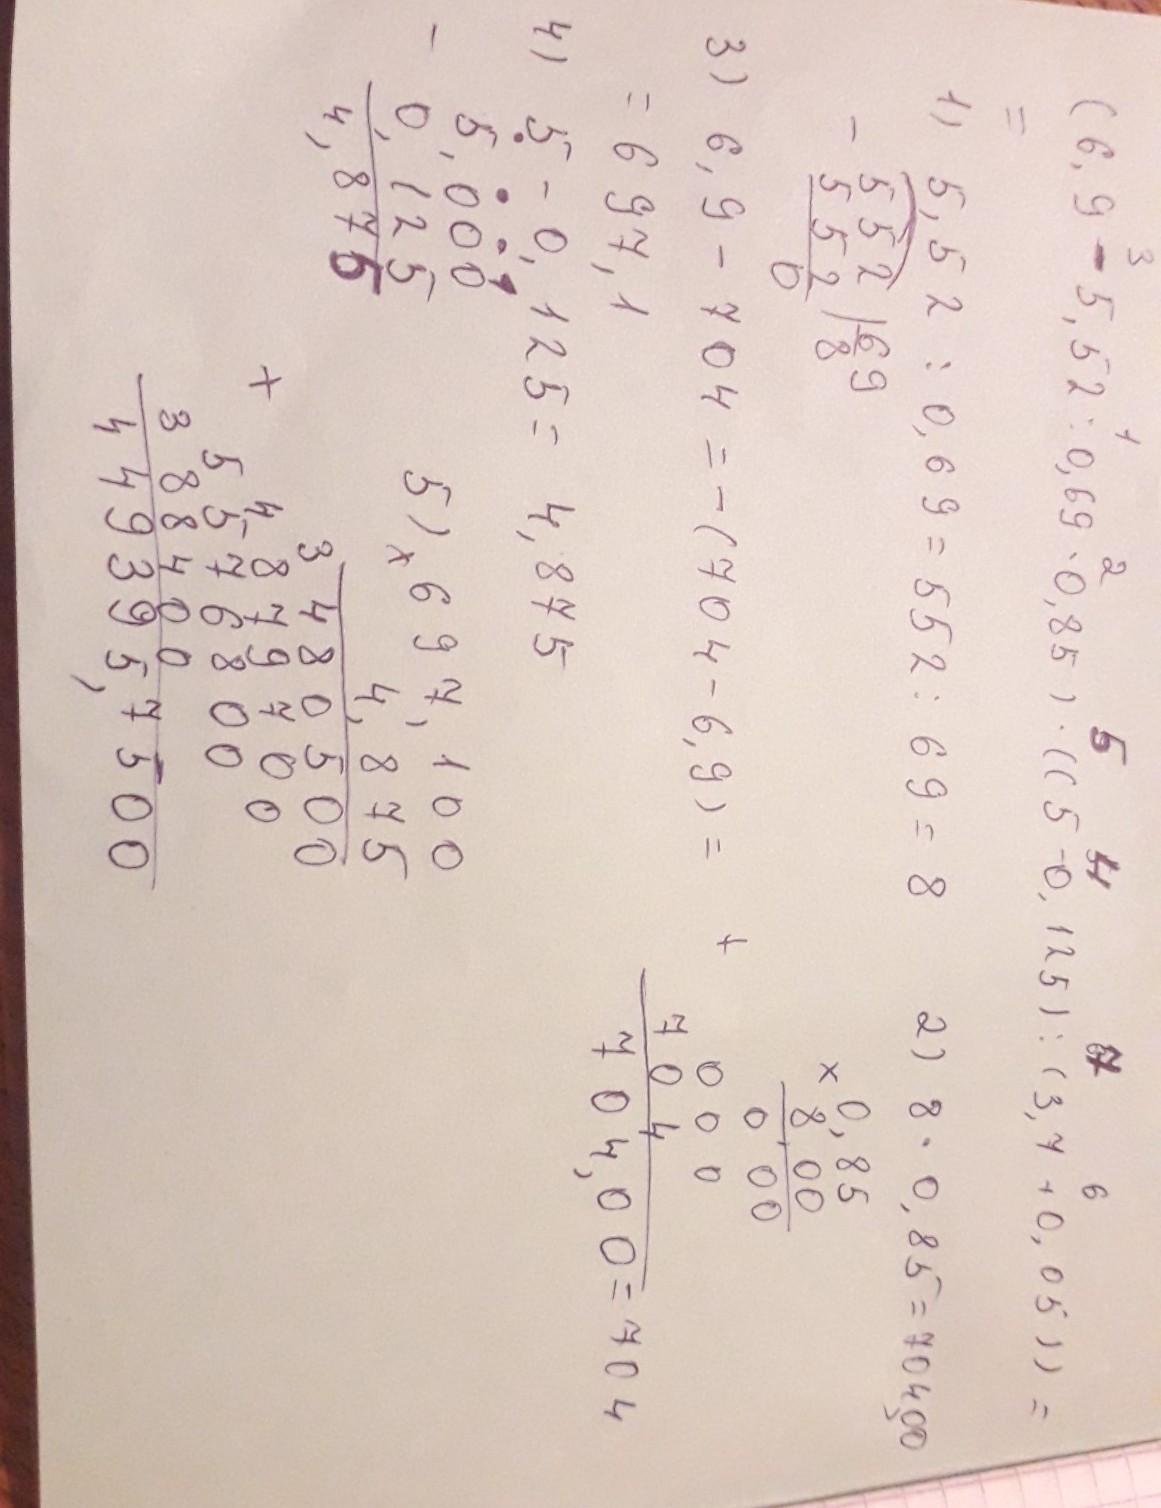 (6,9 - 5,52 : 0,69 · 0,85) · ((5-0,125) : (3,7+0,05)) =
3 1 2 5 4 7 6
=
1) 5,52 : 0,69 = 552 : 69 = 8
- 552 | 69
552 | 8
0
2) 8 · 0,85 = 704,00
× 0,85
8,00
0 00
+ 000
704
704,00 = 704
3) 6,9 - 704 = -(704 - 6,9) =
= 697,1
4) 5 - 0,125 = 4,875
- 5,000
0,125
4,875
5) × 697,100
4,875
3480500
+ 4879700
5576800
388400
449395,7500